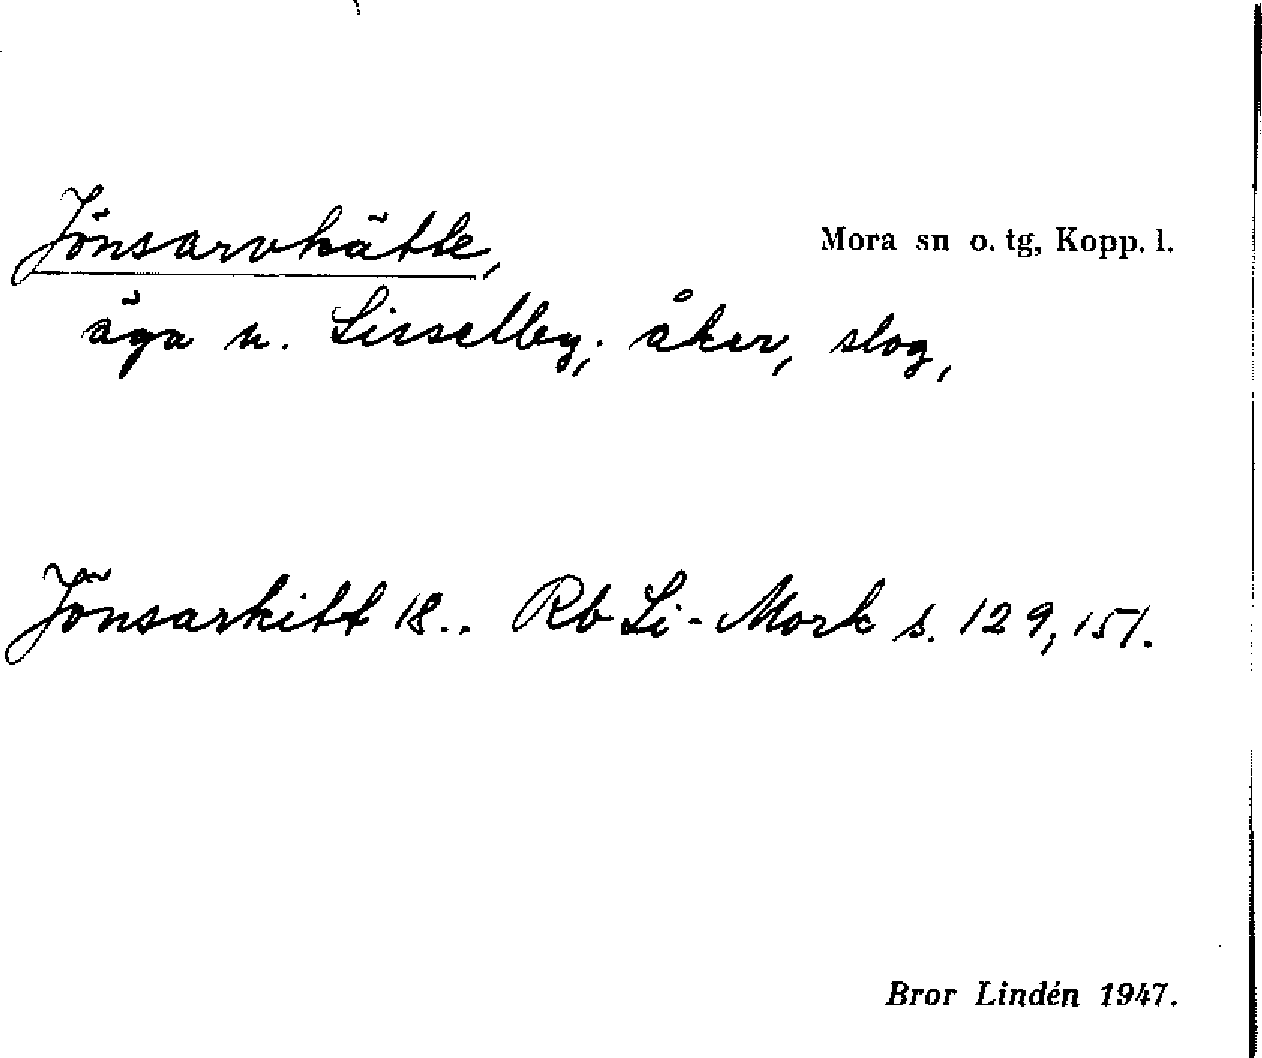 Jönsarvkätte, Mora sn o. tg, Kopp. l.
äga n. Lisselby; åker, slog,
Jönsarkitt 18.. Rb Li-Mork s. 129, 151.
Bror Lindén 1947.